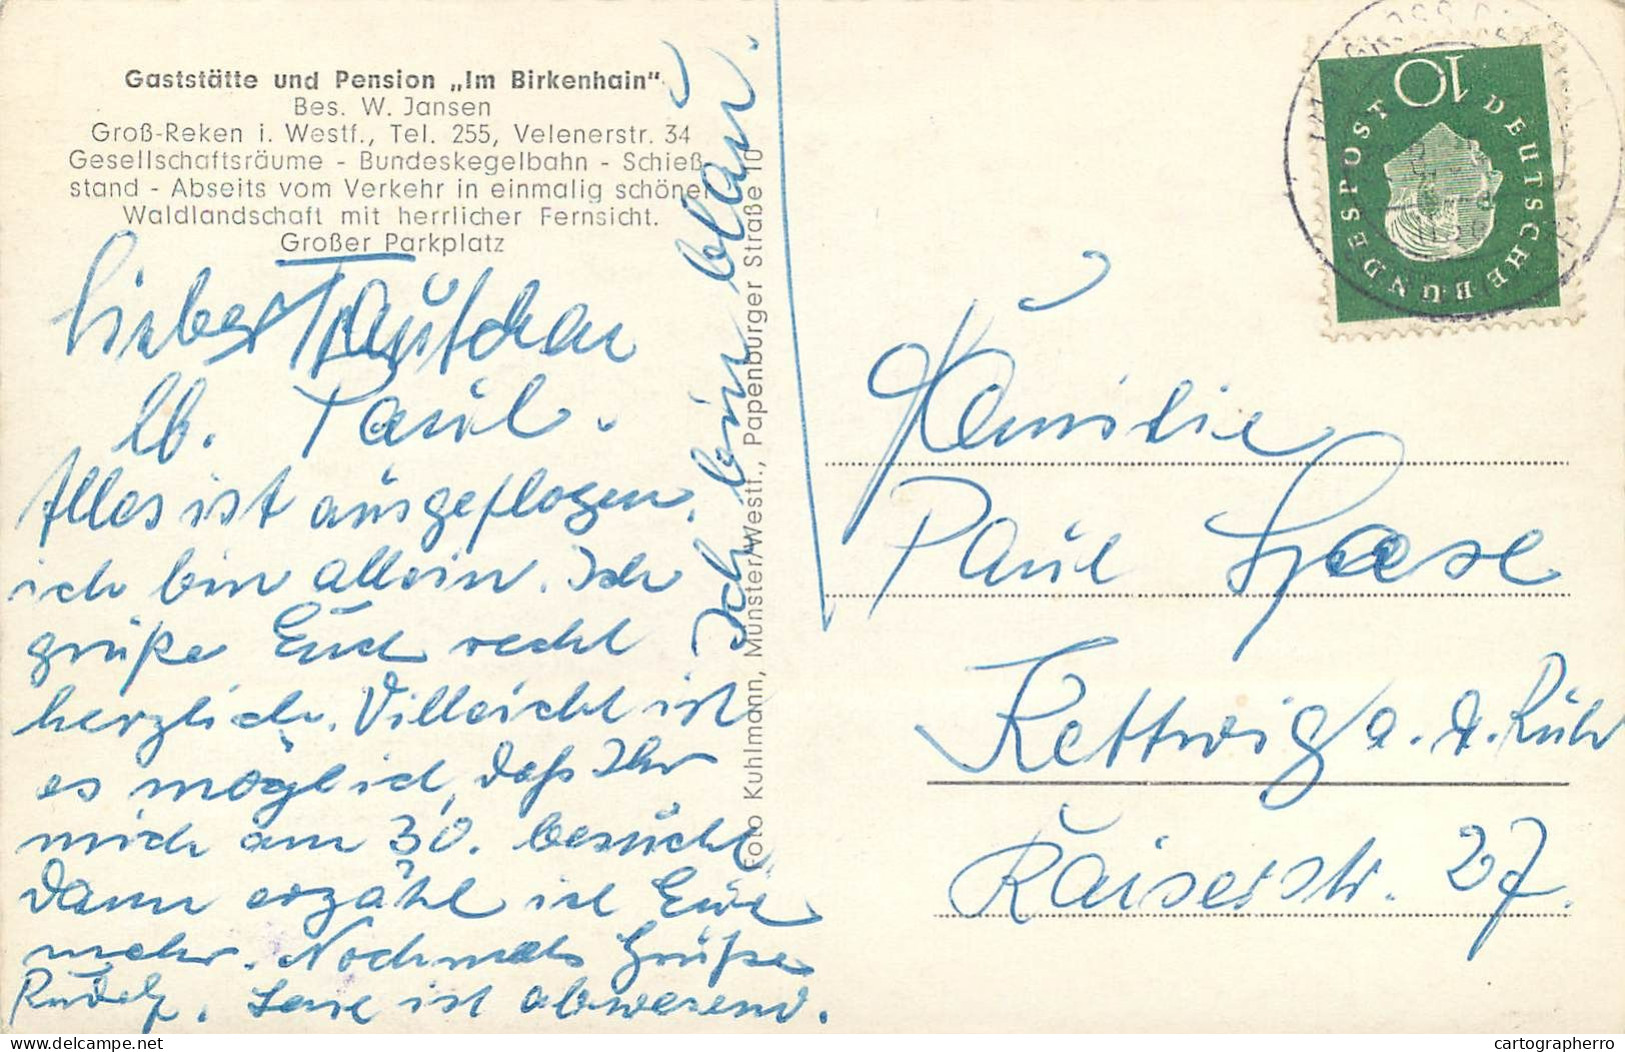 Gaststätte und Pension „Im Birkenhain"
Bes. W. Jansen
Groß-Reken i. Westf., Tel. 255, Velenerstr. 34
Gesellschaftsräume - Bundeskegelbahn - Schieß-
stand - Abseits vom Verkehr in einmalig schöner
Waldlandschaft mit herrlicher Fernsicht.
Großer Parkplatz
lb. Paul.
Alles ist ausgeflogen,
ich bin allein. Ich
grüße Euch recht
herzlich. Villeicht ist
es möglich, daß Ihr
mich am 30. besucht
Dann erzähl ich Euch
mehr. Nochmals Grüße
Rudolf. ist abwesend.
Ich bin blau.
Foto Kuhlmann, Münster/Westf., Papenburger Straße 10
10
DEUTSCHE BUNDESPOST
Familie
Paul Haase
Kettwig a. d. Ruhr
Kaiserstr. 27.
cartographerro